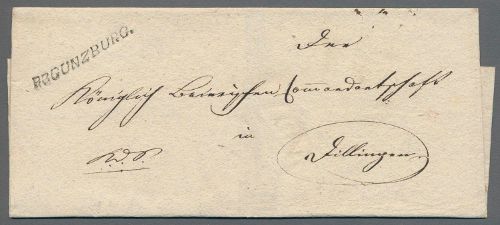 R3GUNZBURG.
Der
Königlich Baierischen Commandantschaft
in
R. d. S. Dillingen.